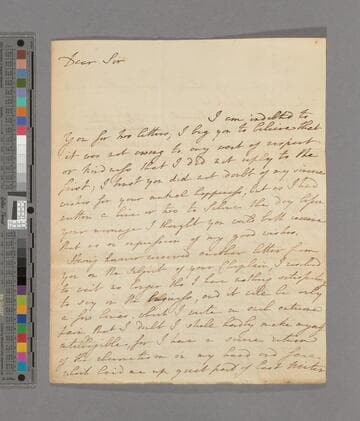 Dear Sir
I am indebted to
You for two letters, I beg you to believe that
it was not owing to any want of respect
or kindness that I did not reply to the
first, I trust you did not doubt of my sincere
wishes for your mutual happiness, but as I had
written a line or two to the Day before
your marriage I thought you would both receive
that as an expression of my good wishes.
Having however received another letter from
You on the subject of your Chaplain, I wished
to wait no longer tho I have nothing satisfactory
to say on the business, and it will be only
a few lines, which I write in such extreme
pain that I doubt I shall hardly make myself
intelligible, for I have a severe return
of the rheumatism in my hand and
which laid me up great part of last Winter